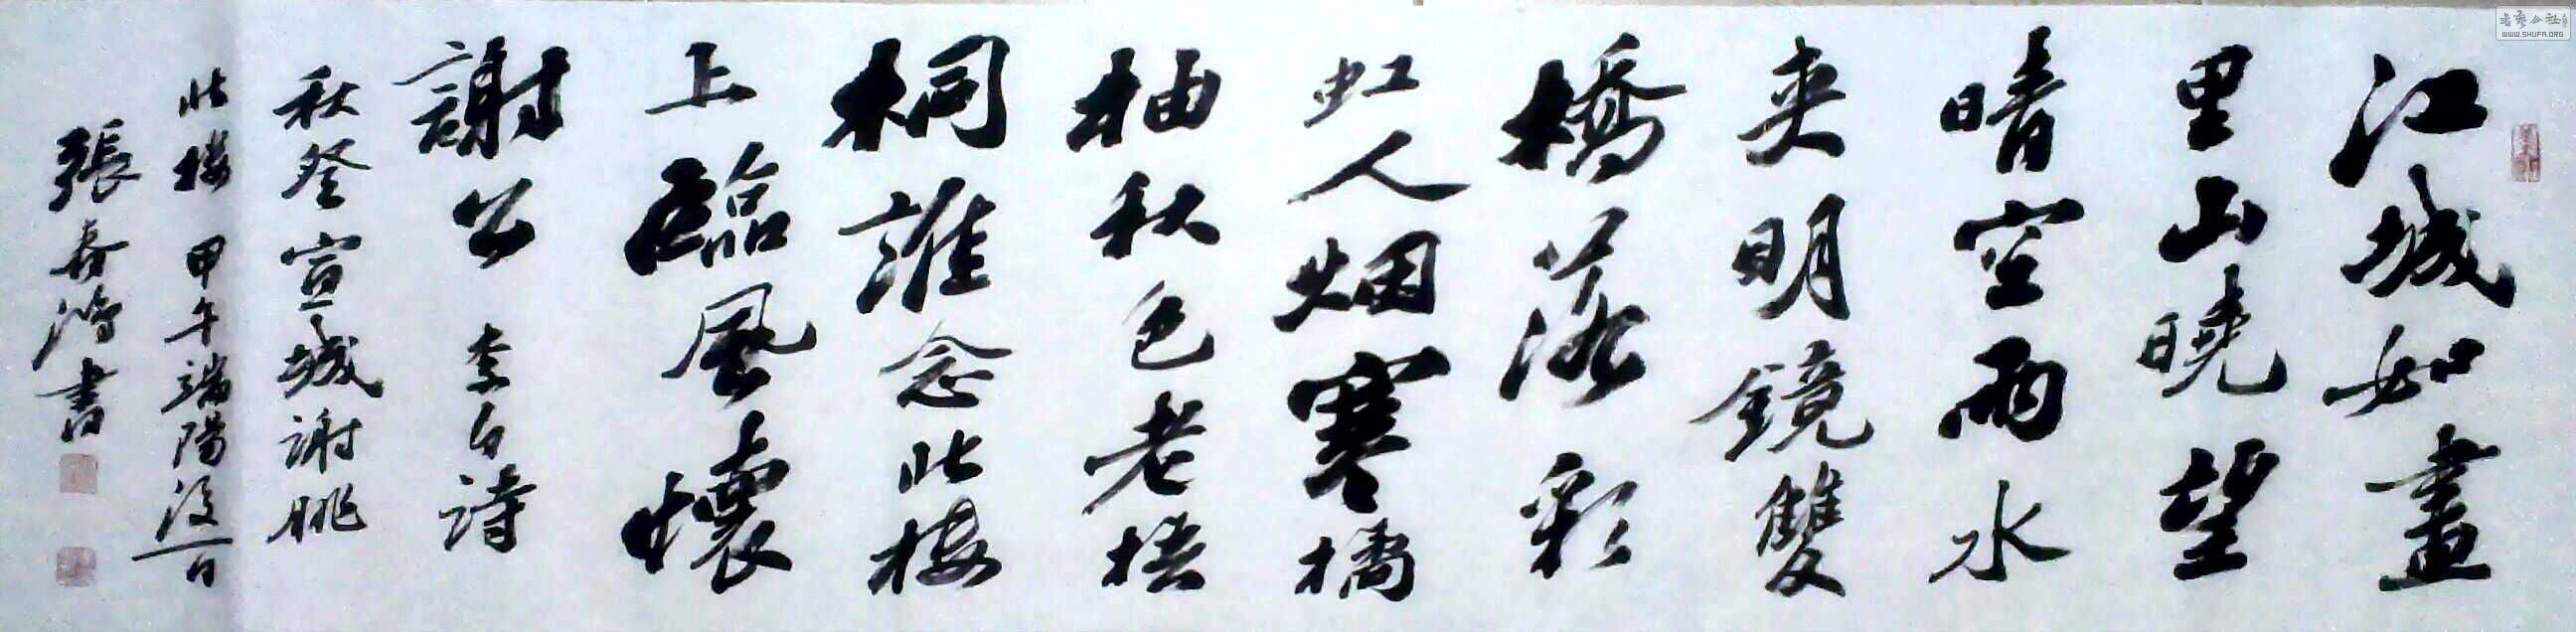 江城如畫
里山曉望
晴空兩水
夾明鏡雙
橋落彩
虹人烟寒橘
柚秋色老梧
桐誰念北樓
上臨風懷
謝公 李白詩
秋登宣城謝朓
北樓 甲午端陽後一日
張春鴻書
书艺公社
WWW.SHUFA.ORG